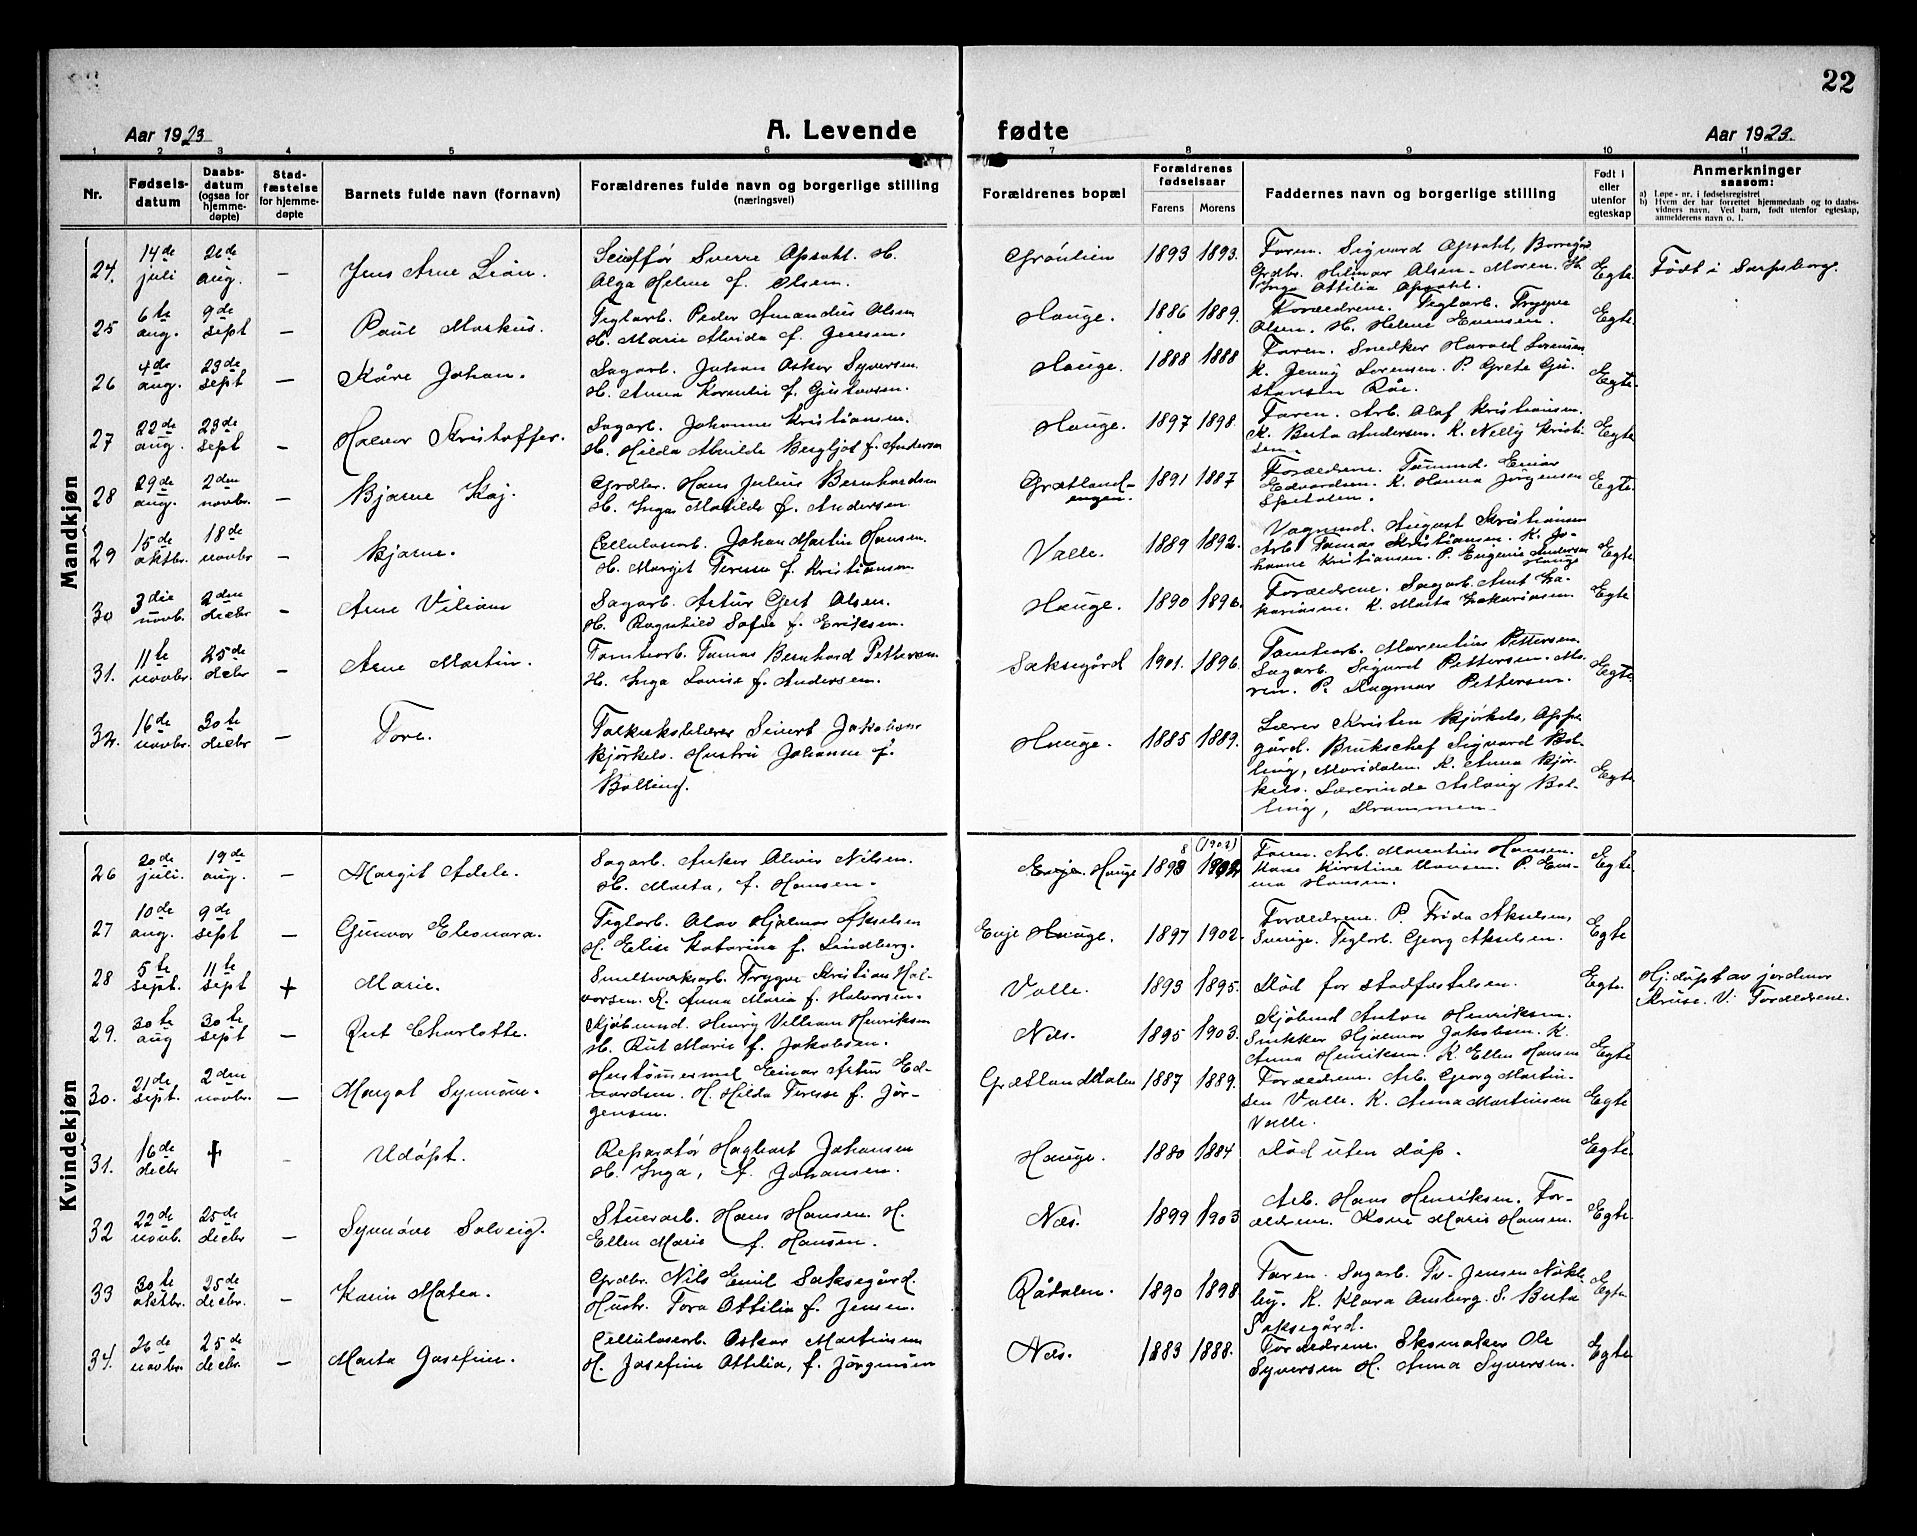 22
Aar 1923
A. Levende
fødte
Aar 1923.
1 2 3 4 5 6 7 8 9 10 11
Nr.
Fødsels-
datum
Daabs-
datum
(ogsaa for
hjemme-
døpte)
Stad-
fæstelse
for hjemme-
døpte
Barnets fulde navn (fornavn)
Forældrenes fulde navn og borgerlige stilling
(næringsvei)
Forældrenes bopæl
Forældrenes
fødselsaar
Farens Morens
Faddernes navn og borgerlige stilling
Født i
eller
utenfor
egteskap
Anmerkninger
saasom:
a) Løpe-nr. i fødselsregistret
b) Hvem der har forrettet hjemmedaab og to daabs-
vidners navn. Ved barn, født utenfor egteskap,
anmelderens navn o. l.
Mandkjøn
24. 14de juli 26de aug. – Jens Arne
Sverre Opsahl. H.
Alga Helene f. Olsen.
1893 1893.
Faren. Sigvard Opsahl,
Grdbr. Hilmar Olsen. Moren. Fr.
Inga Ottilia Opsahl.
Egte. Født i Sarpsborg.
25 6te aug. 9de sept – Paul Markus.
Teglarb. Peder Amandus Olsen
H. Marie Alvida f. Jensen.
Hauge. 1886 1889.
Forældrene. Teglarb. Trygve
Olsen. H. Helene Evensen.
Egte.
26 4de aug. 23de sept – Kåre Johan.
Sagarb. Johan Oskar Syversen
H. Anna Kornelie f. Gustavsen.
Hauge. 1888 1888
Faren. Snedker Harald Lorensen
K. Jenny Lorensen. P. Grete Gu-
stavsen
Egte.
27 22de aug. 23de sept – Halvor Kristoffer.
Sagarb. Johannes Kristiansen.
H. Hilda Alvilde Bergljot f. Andersen
Hauge. 1897 1898.
Faren. Arb. Olaf Kristiansen.
K. Berta Andersen. K. Nelly Kristi-
sen.
Egte
28 29de aug. 2den novbr. – Bjarne Kaj.
Grdbr. Hans Julius Bernhardsen
H. Inga Matilde f. Andersen.
Grætland-
engen. 1891 1887
Forældrene. Tømmd. Einar
Edvardsen. K. Hanna Jørgensen
Egte.
29 15de oktbr. 18de novbr – Bjarne.
Cellulosearb. Johan Martin Hansen.
H. Margit Terese f. Kristiansen
Valle. 1889 1892.
Vognmd. August Kristiansen
Arb. Tomas Kristiansen. K. Jo-
hanne Kristiansen. P. Eugenie Andersen
Hauge
Egte
30 3die novb. 2den decbr – Arne Viliam
Sagarb. Artur Gert Olsen.
H. Ragnhild Sofie f. Eriksen.
Hauge. 1890 1896.
Forældrene. Sagarb. Arnt Za-
kariasen. K. Marta Zakariasen
Egte
31. 11te novbr. 25de decbr – Arne Martin.
Tomtearb. Tomas Bernhard Pettersen
H. Inga Lovise f. Andersen.
Saksegård 1901. 1896.
Tomtearb. Morentius Pettersen.
Sagarb. Sigurd Pettersen. Mo-
ren. P. Dagmar Pettersen.
Egte
32. 16de novbr. 30te decbr – Tore.
Folkeskolelærer Sivert Jakobsen
Bjørkels. Hustru Johanne f.
Bolling.
Hauge. 1885 1889.
Lærer Kristen Bjørkels, Oppe-
gård. Brukschef Sigvard Bol-
ling, Maridalen. K. Anna Bjør-
kels. Lærerinde Aslaug Bol-
ling, Drammen.
Egte
Kvindekjøn
26 20de juli. 19de aug. – Margit Adele.
Sagarb. Anker Oliver Nilsen.
H. Marta, f. Hansen.
Hauge (1902)
Faren. Arb. Morentius Hansen.
Kone Kirstine Hansen. P. Em-
ma Hansen.
Egte
27 10de aug. 9de sept – Gunvor Eleonora.
Teglarb. Olav Hjalmar Akselsen
H. Elise Katarina f. Lindberg.
Enje Hauge. 1897 1902.
Forældrene. P. Frida Akselsen,
Teglarb. Georg Akselsen.
Egte
28 5te sept. 11te sept + Marie.
Smelteverksarb. Trygve Kristian Hal-
vorsen. K. Anna Maria f. Halvorsen.
Valle. 1893 1895.
Død før stadfæstelsen.
Egte.
Hj.døpt av jordmor
Kruse. V. Forældrene.
29. 30te aug 30te sept – Rut Charlotte.
Kjøbmnd. Henry Villiam Henriksen
H. Rut Marie f. Jakobsen.
Næs. 1895 1903.
Kjøbmd Anton Henriksen.
Snekker Hjalmar Jakobsen. K.
Anna Henriksen. K. Ellen Hansen
Egte
30. 21de sept. 2den novbr. – Margot Synnøve.
Hustømmermd Einar Artur Ed-
vardsen. H. Hilda Terese f. Jør-
gensen.
Grætland Dalen 1887 1889.
Forældrene. Arb. Georg Martin-
sen Valle. K. Anna Martinsen
Valle.
Egte
31. 16de decbr + – Udøpt.
Reparatør Hagbart Johansen
H. Inga, f. Johansen.
Hauge. 1880 1884
Død uten dåp.
Egte
32 22de novb. 25de decbr – Synnøve Solveig.
Stuerarb. Hans Hansen. H.
Ellen Marie f. Hansen.
Næs. 1899 1903
Arb. Hans Henriksen. For-
ældrene. Kone Marie Hansen.
Egte.
33 30te oktbr. 25de decbr. – Karin Matea.
Grdbr. Nils Emil Saksegård.
Hustr. Tora Ottilia f. Jensen.
Rådalen. 1890 1898
Faren. Sagarb. Jensen Nøkle-
by. K. Klara Amsberg. S. Berta
Saksegård.
Egte
34. 26de novbr. 25de decbr. – Marta Josefine.
Cellulosearb. Oskar Martinsen
H. Josefine Ottilia, f. Jørgensen
Næs. 1883 1888.
Forældrene. Skomaker Ole
Syversen H. Anna Syversen.
Egte